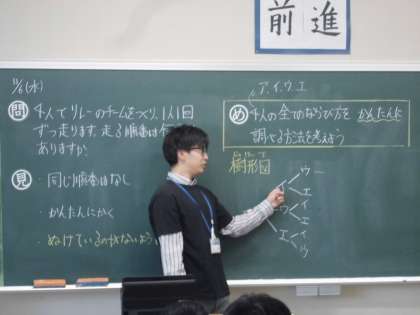 前進
11/6(水)
問 4人でリレーのチームをつくり、1人1回
ずつ走ります。走る順番は何
ありますか。
見 ・同じ順番はなし
・かんたんにかく
・ぬけているのがないよう
ア、イ、ウ、エ
め 4人の全てのならび方を かんたんに
調べる方法を考えよう
樹形図
ウ
エ
イ
ウ
エ
イ
エ
イ
ウ